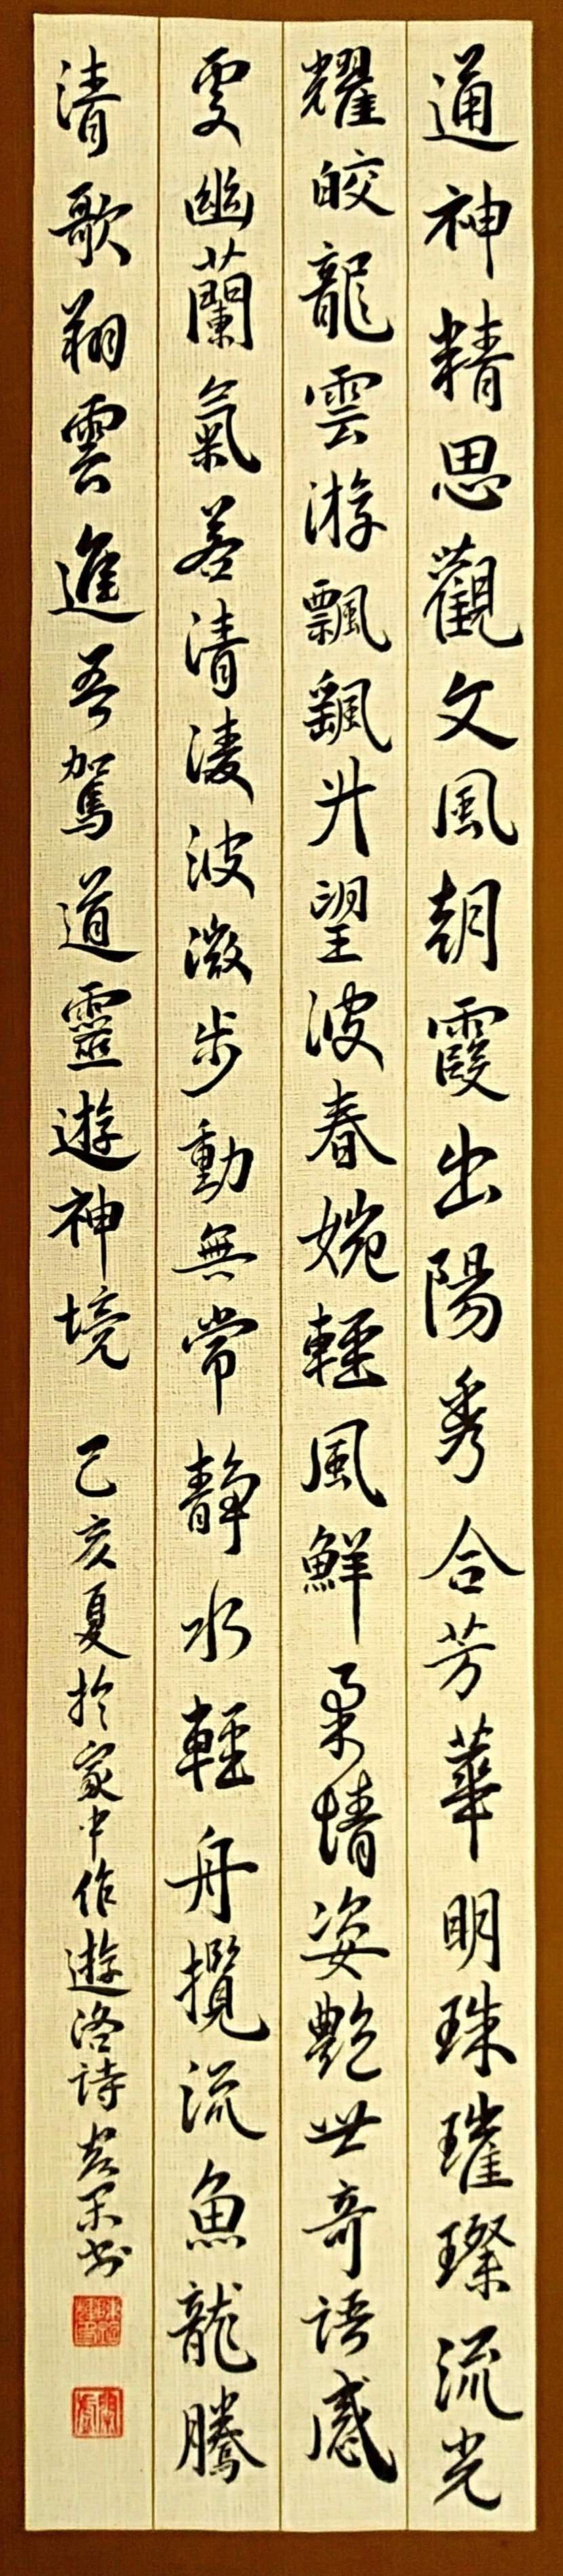 通神精思觀文風朝霞出陽秀合芳華明珠璀璨流光
耀皎龍雲游飄颻升望波春婉輕風鮮柔情姿艷世奇語感
雯幽蘭氣若清淩波微步動無常靜水輕舟攬流魚龍騰
清歌翔雲進吾駕道靈遊神境 己亥夏於家中作遊洛詩 書